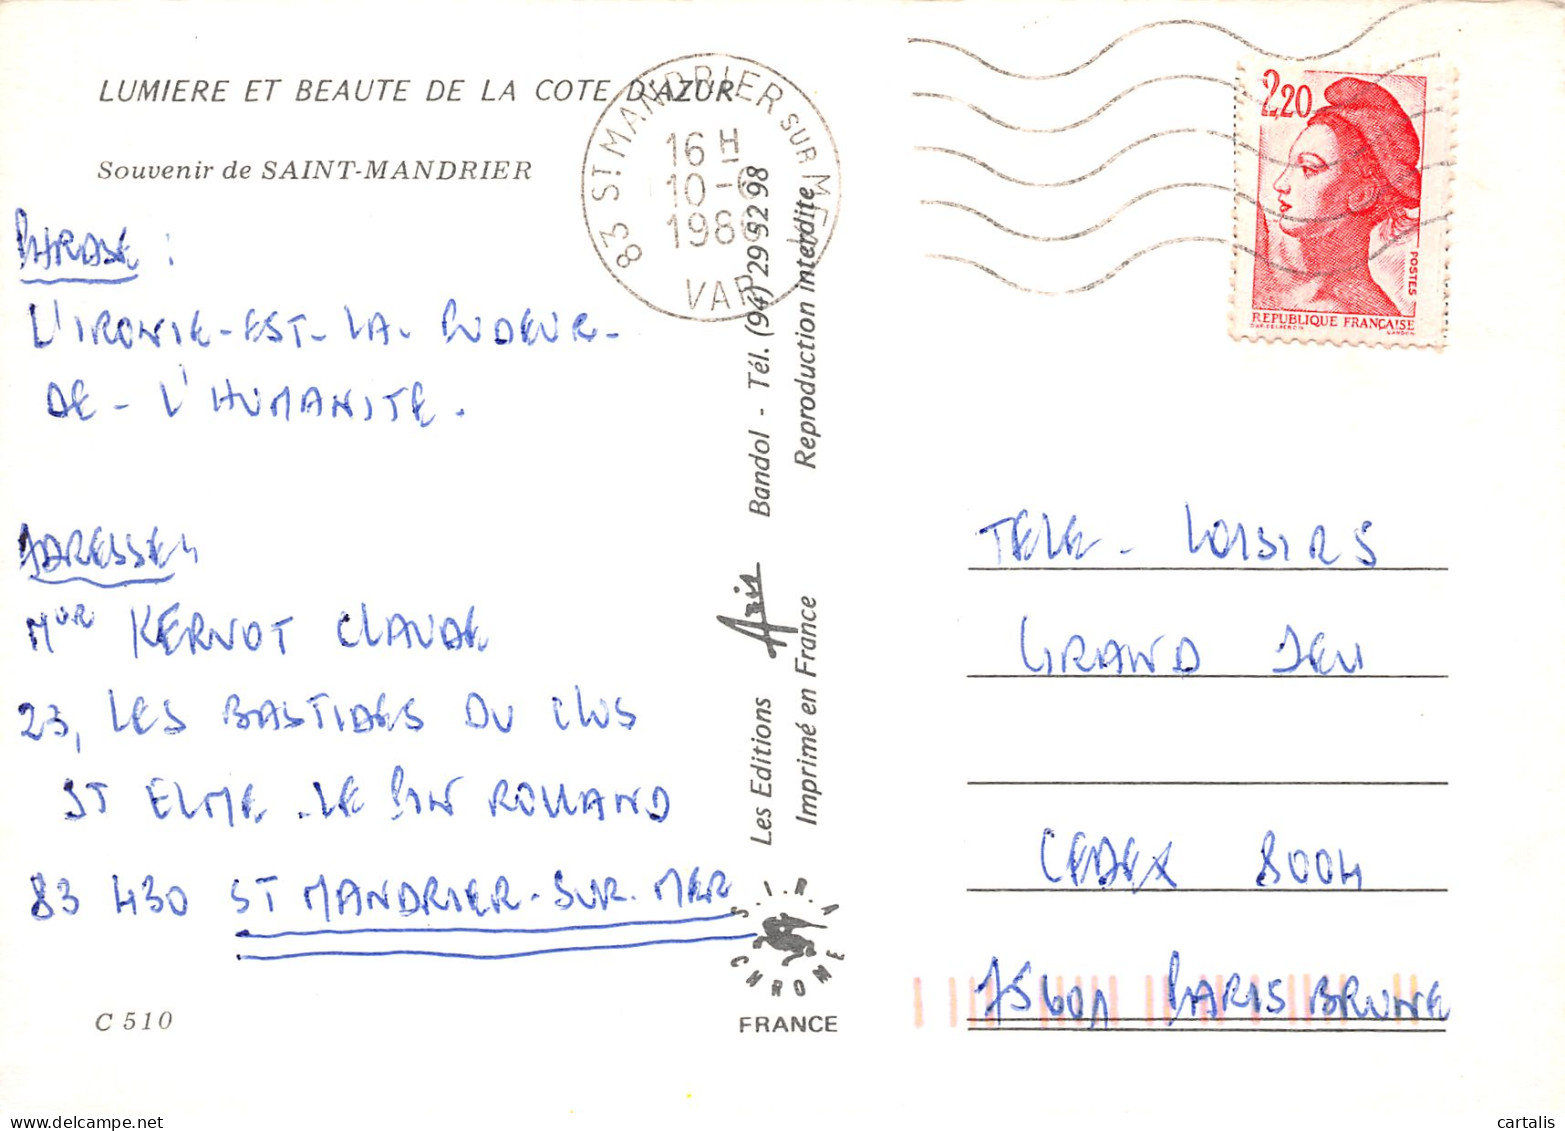 LUMIERE ET BEAUTE DE LA COTE D'AZUR
Souvenir de SAINT-MANDRIER
PHRASE :
L'IRONIE-EST-LA-PUDEUR-
DE-L'HUMANITE.
ADRESSE
Mur KERNOT CLAUDE
23, LES BASTIDES DU CLOS
ST ELME-LE PIN ROLLAND
83 430 ST MANDRIER-SUR.MER
C 510
83 ST MANDRIER SUR MER
16 H
10-6
VAR
Les Editions Aris Bandol - Tél. (94) 29 52 98
Imprimé en France Reproduction interdite
S.I.R.A
CHROME
FRANCE
2,20
POSTES
REPUBLIQUE FRANÇAISE
TELE-LOISIRS
GRAND JEU
CEDEX 8004
75601 PARIS BRUNE
cartalis